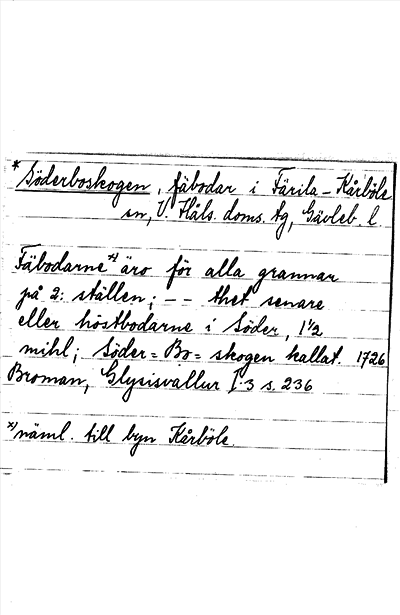 * Söderboskogen, fäbodar i Färila-Kårböle
sn, V. Häls. doms. tg, Gävleb. l.
Fäbodarne *) äro för alla grannar
på 2: ställen; -- thet senare
eller höstbodarne i Söder, 1 1/2
mihl; Söder=Bo=skogen kallat. 1726
Broman, Glysisvallur I:3 s. 236
*) näml. till byn Kårböle.